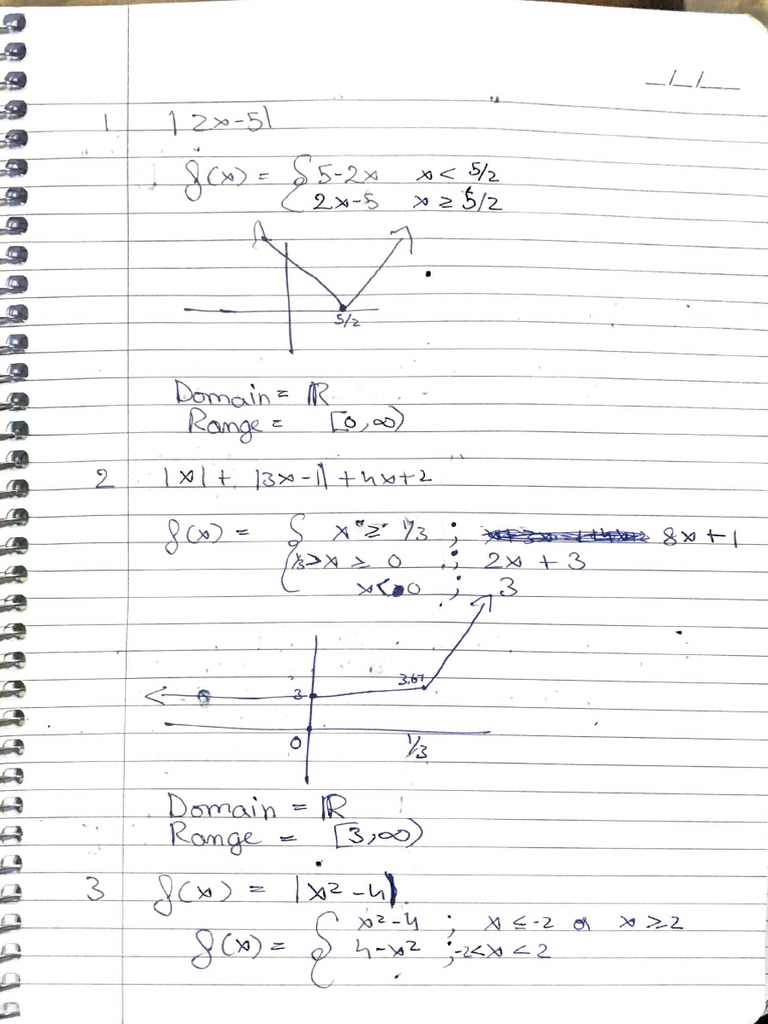 _/_/_
1 |2x-5|
f(x) = { 5-2x x < 5/2
2x-5 x ≥ 5/2
5/2
Domain = ℝ
Range = [0,∞)
2 |x| + |3x-1| + 4x+2
f(x) = { x ≥ 1/3 ; 8x+1
1/3 > x ≥ 0 ; 2x + 3
x < 0 ; 3
3.67
3
0 1/3
Domain = ℝ
Range = [3,∞)
3 f(x) = |x²-4|
f(x) = { x²-4 ; x ≤ -2 or x ≥ 2
4-x² ; -2<x<2